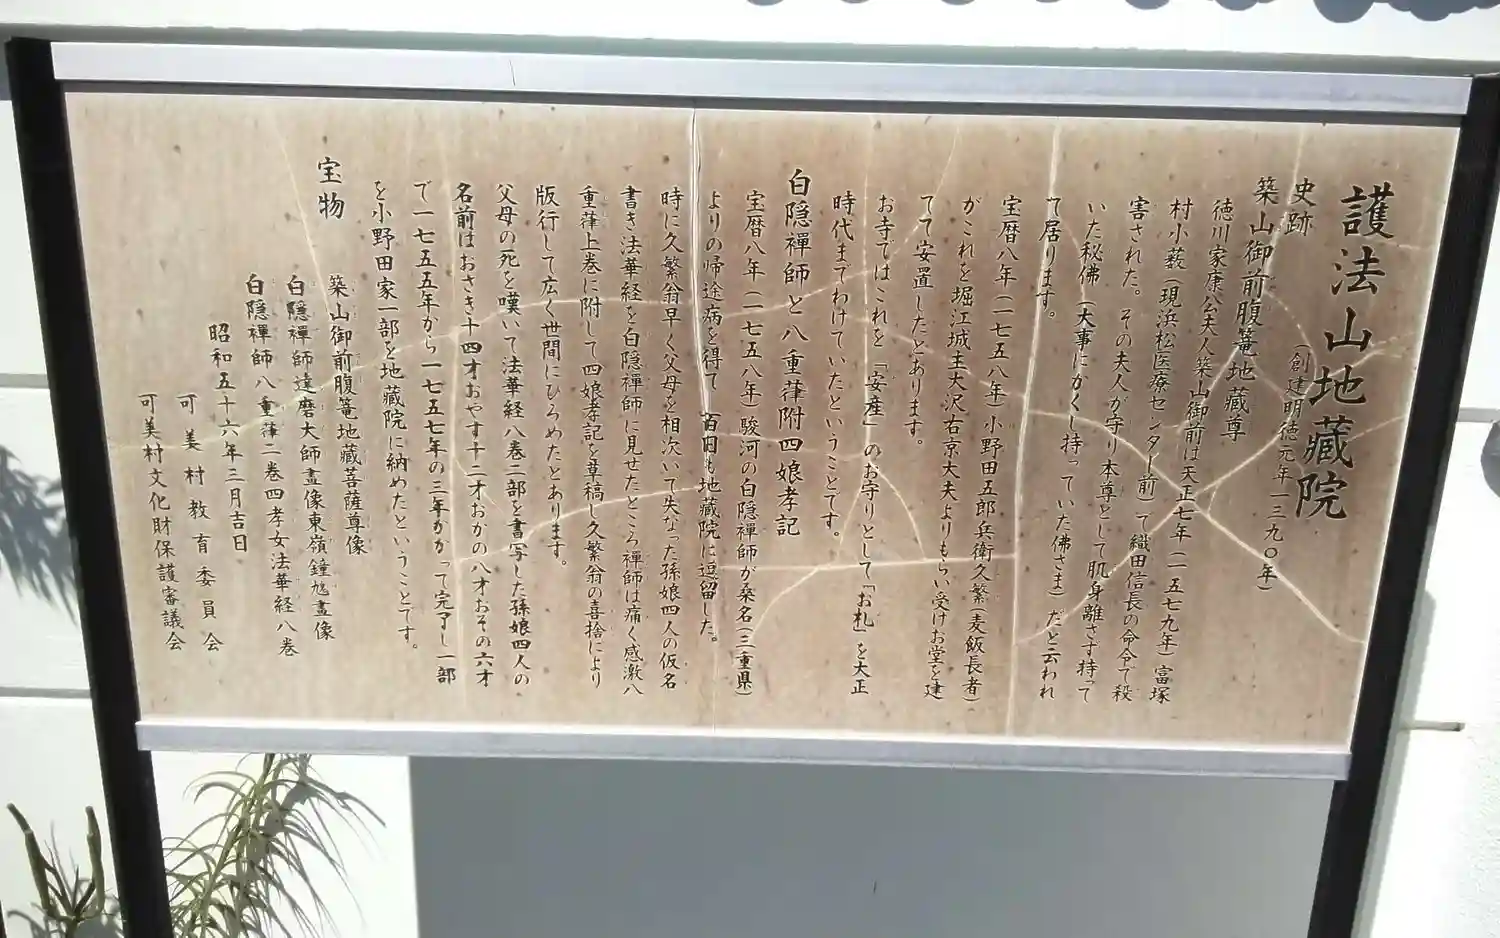 護法山地蔵院
(創建明徳元年一三九〇年)
史跡
築山御前腹篭地蔵尊
徳川家康公夫人築山御前は天正七年(一五七九年)富塚
村小薮(現浜松医療センター前)で織田信長の命令で殺
害された。その夫人が守り本尊として肌身離さず持って
いた秘佛(大事にかくし持っていた佛さま)だと云われ
て居ります。
宝暦八年(一七五八年)小野田五郎兵衛久繁(麦飯長者)
がこれを堀江城主大沢右京大夫よりもらい受けお堂を建
てて安置したとあります。
お寺ではこれを「安産」のお守りとして「お札」を大正
時代までわけていたということです。
白隠禪師と八重葎附四娘孝記
宝暦八年(一七五八年)駿河の白隠禪師が桑名(三重県)
よりの帰途病を得て百日も地蔵院に逗留した。
時に久繁翁早く父母を相次いで失なった孫娘四人の仮名
書き法華経を白隠禪師に見せたところ禪師は痛く感激八
重葎上巻に附して四娘孝記を草稿し久繁翁の喜捨により
版行して広く世間にひろめたとあります。
父母の死を嘆いて法華経八巻二部を書写した孫娘四人の
名前はおさき十四才おやす十二才おかの八才おその六才
で一七五五年から一七五七年の三年かかって完了し一部
を小野田家一部を地蔵院に納めたということです。
宝物
築山御前腹篭地蔵菩薩尊像
白隠禪師達磨大師畫像東嶺鐘馗畫像
白隠禪師八重葎二巻四孝女法華経八巻
昭和五十六年三月吉日
可美村教育委員会
可美村文化財保護審議会